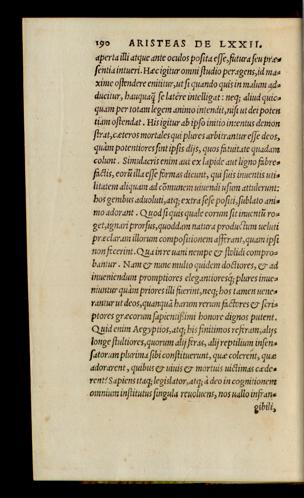 190 ARISTEAS DE LXXII.
aperta illi atque ante oculos posita esse, futura seu præ-
sentia intueri. Hæc igitur omni studio peragens, id ma-
xime ostendere enititur, ut si quando quis in malum ad-
ducitur, hauquaq̃ se latére intelligat: neq; aliud quic-
quam per totam legem animo intendit, nisi ut dei poten
tiam ostendat. Hi igitur ab ipso initio inentus demon
strat, cæteros mortales qui plures arbitrantur esse deos,
quàm potentiores sint ipsis dijs, quos fatuitate quadam
colunt. Simulacris enim aut ex lapide aut ligno fabre-
factis, eorũ illa esse formas dicunt, qui suis inuentis uti-
litatem aliquam ad cõmunem uiuendi usum attulerunt:
hos genibus aduoluti, atq; extra se se positi, sublato ani
mo adorant. Quod si quis quale eorum sit inuentũ ro-
get, ignari prorsus, quoddam natura productum ueluti
præclaram illorum compositionem afferant, quam ipsi
non fecerint. Qua in re uani nempe & stolidi compro-
bantur. Nam & nunc multo quidem doctiores, & ad
inueniendum promptiores elegantioresq; plures inue-
niuntur quàm priores illi fuerint, neq; hos tamen uene-
rantur ut deos, quanquã harum rerum factores & scri-
ptores græcorum sapientissimi honore dignos putent.
Quid enim Aegyptios, atq; his finitimos referam, alijs
longe stultiores, quorum alij feras, alij reptilium insen-
satorum plurima sibi constituerunt, quæ colerent, quæ
adorarent, quibus & uiuis & mortuis uictimas cæde-
rent? Sapiens itaq; legislator, atq; à deo in cognitionem
omnium institutus singula reuoluens, nos uallo infran-
gibili,